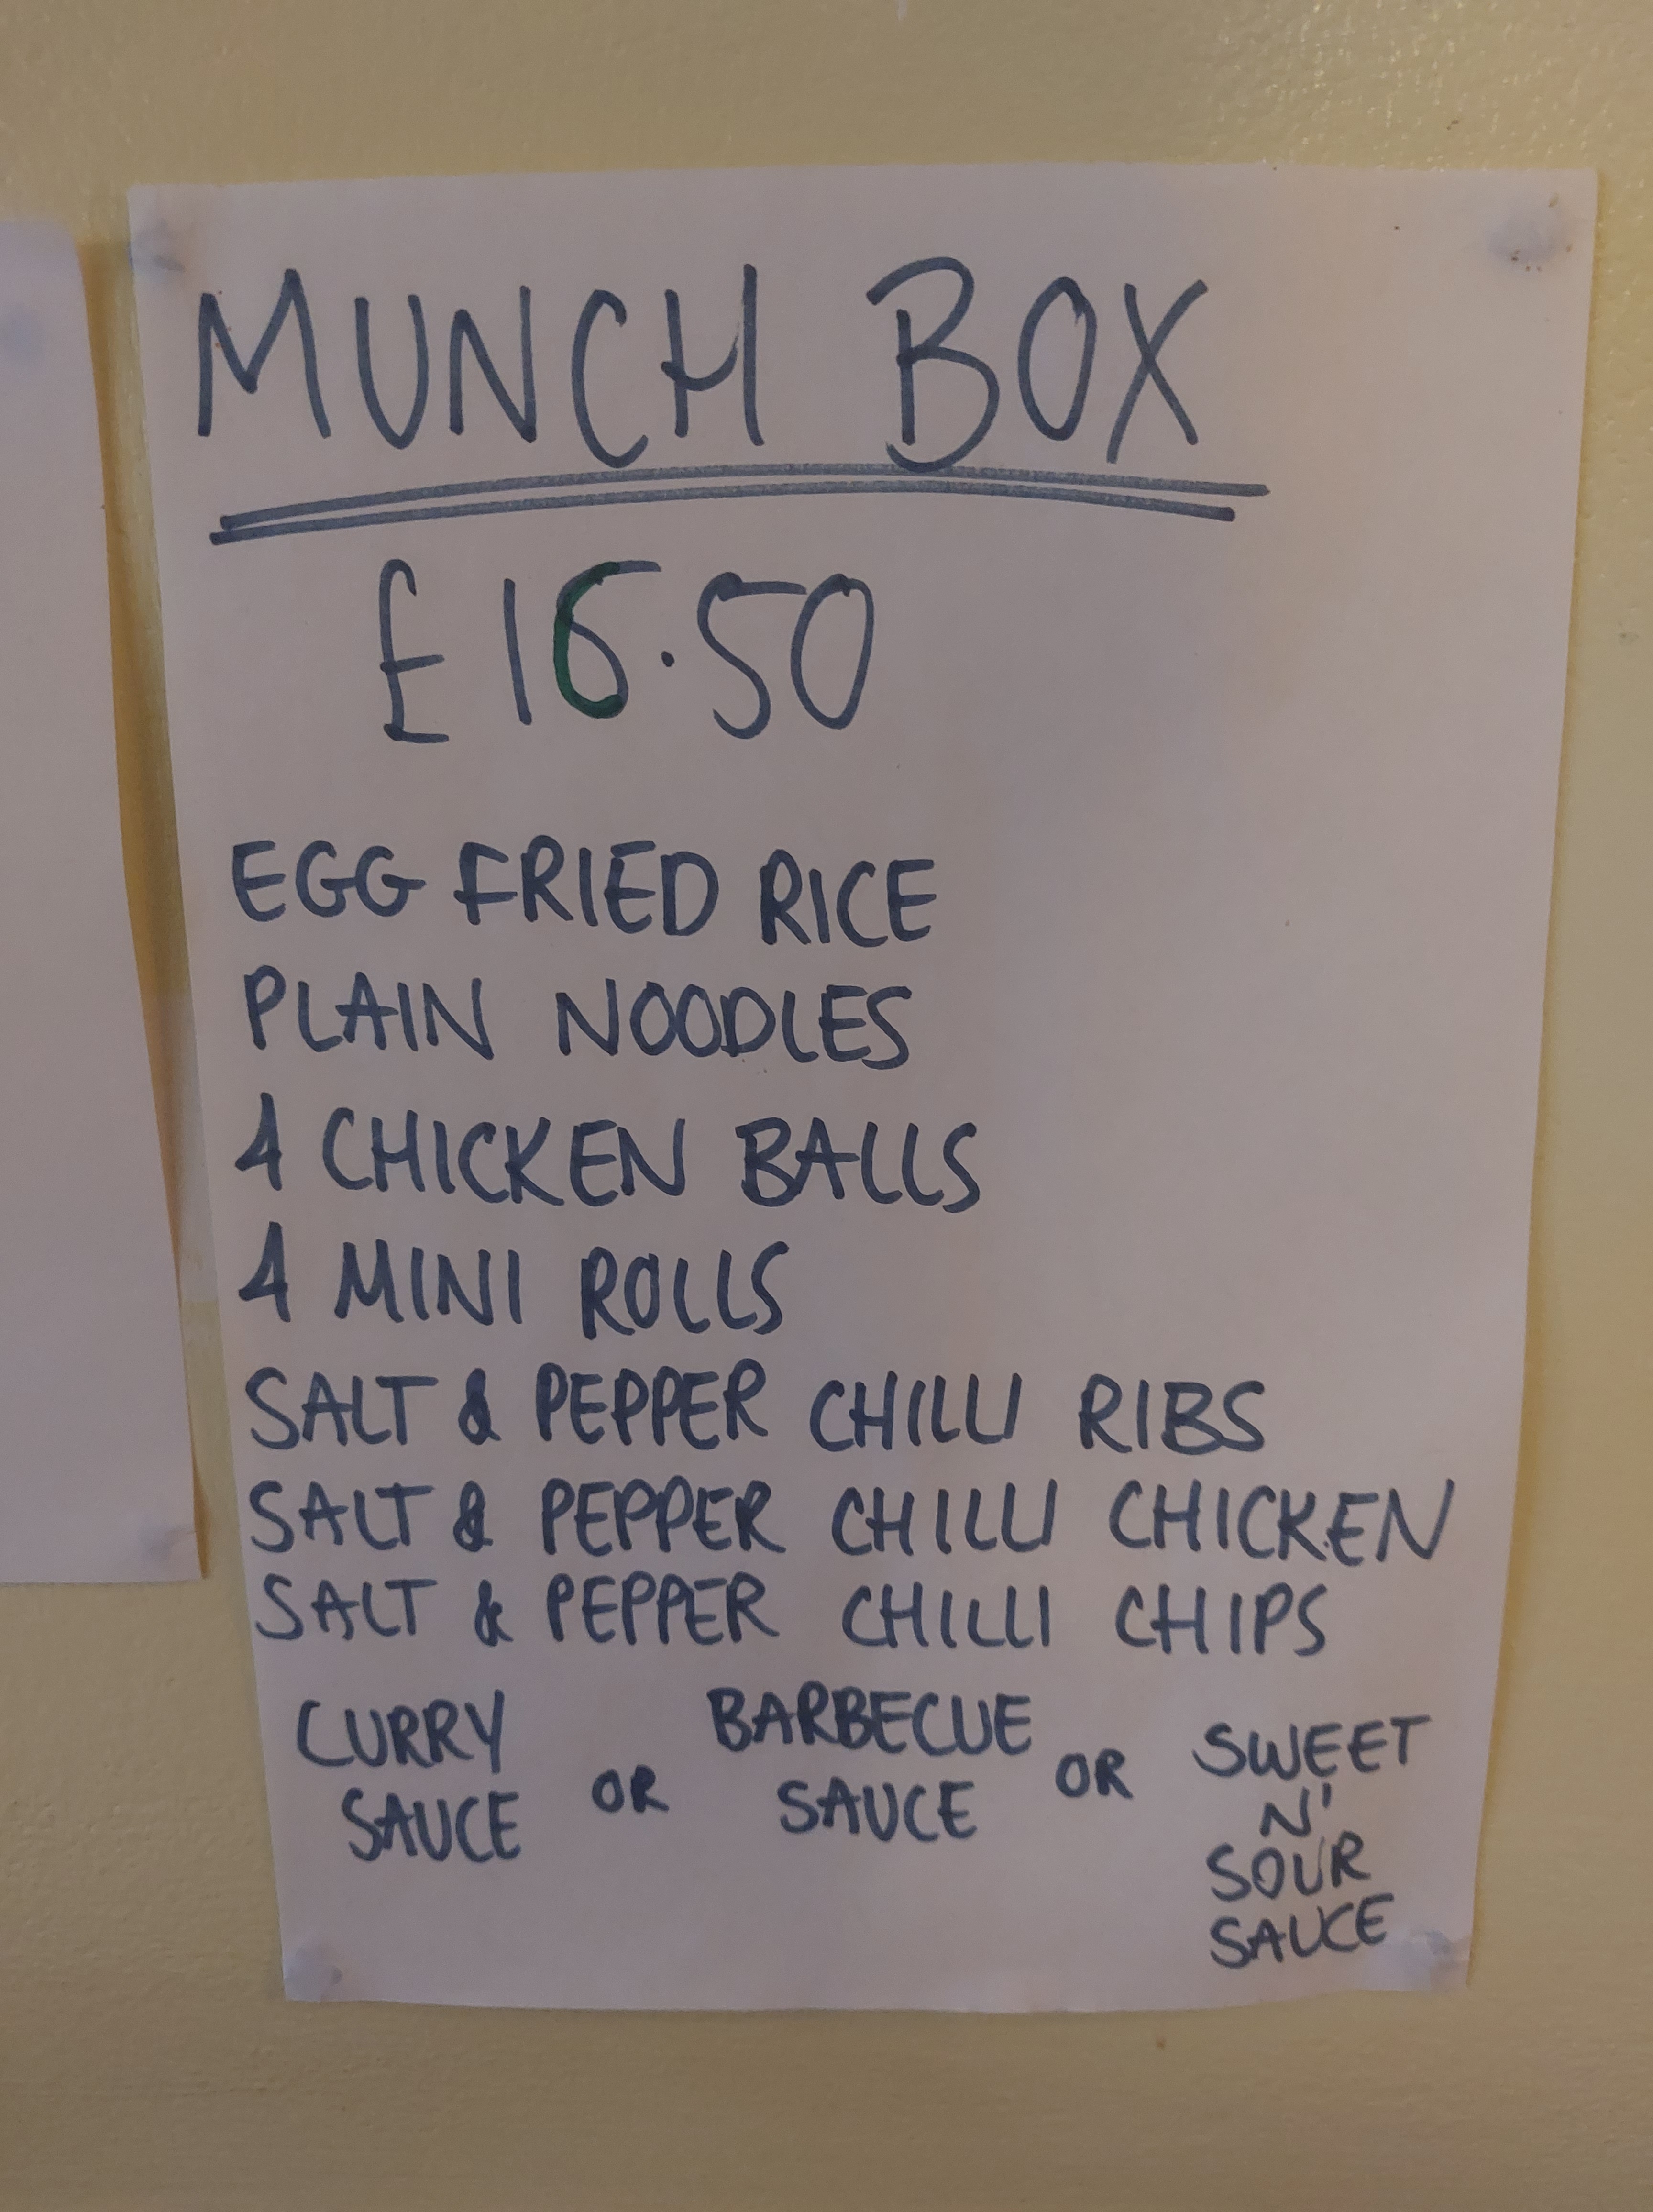 MUNCH BOX
£16.50
EGG FRIED RICE
PLAIN NOODLES
4 CHICKEN BALLS
4 MINI ROLLS
SALT & PEPPER CHILLI RIBS
SALT & PEPPER CHILLI CHICKEN
SALT & PEPPER CHILLI CHIPS
CURRY
SAUCE
OR
BARBECUE
SAUCE
OR
SWEET
N'
SOUR
SAUCE